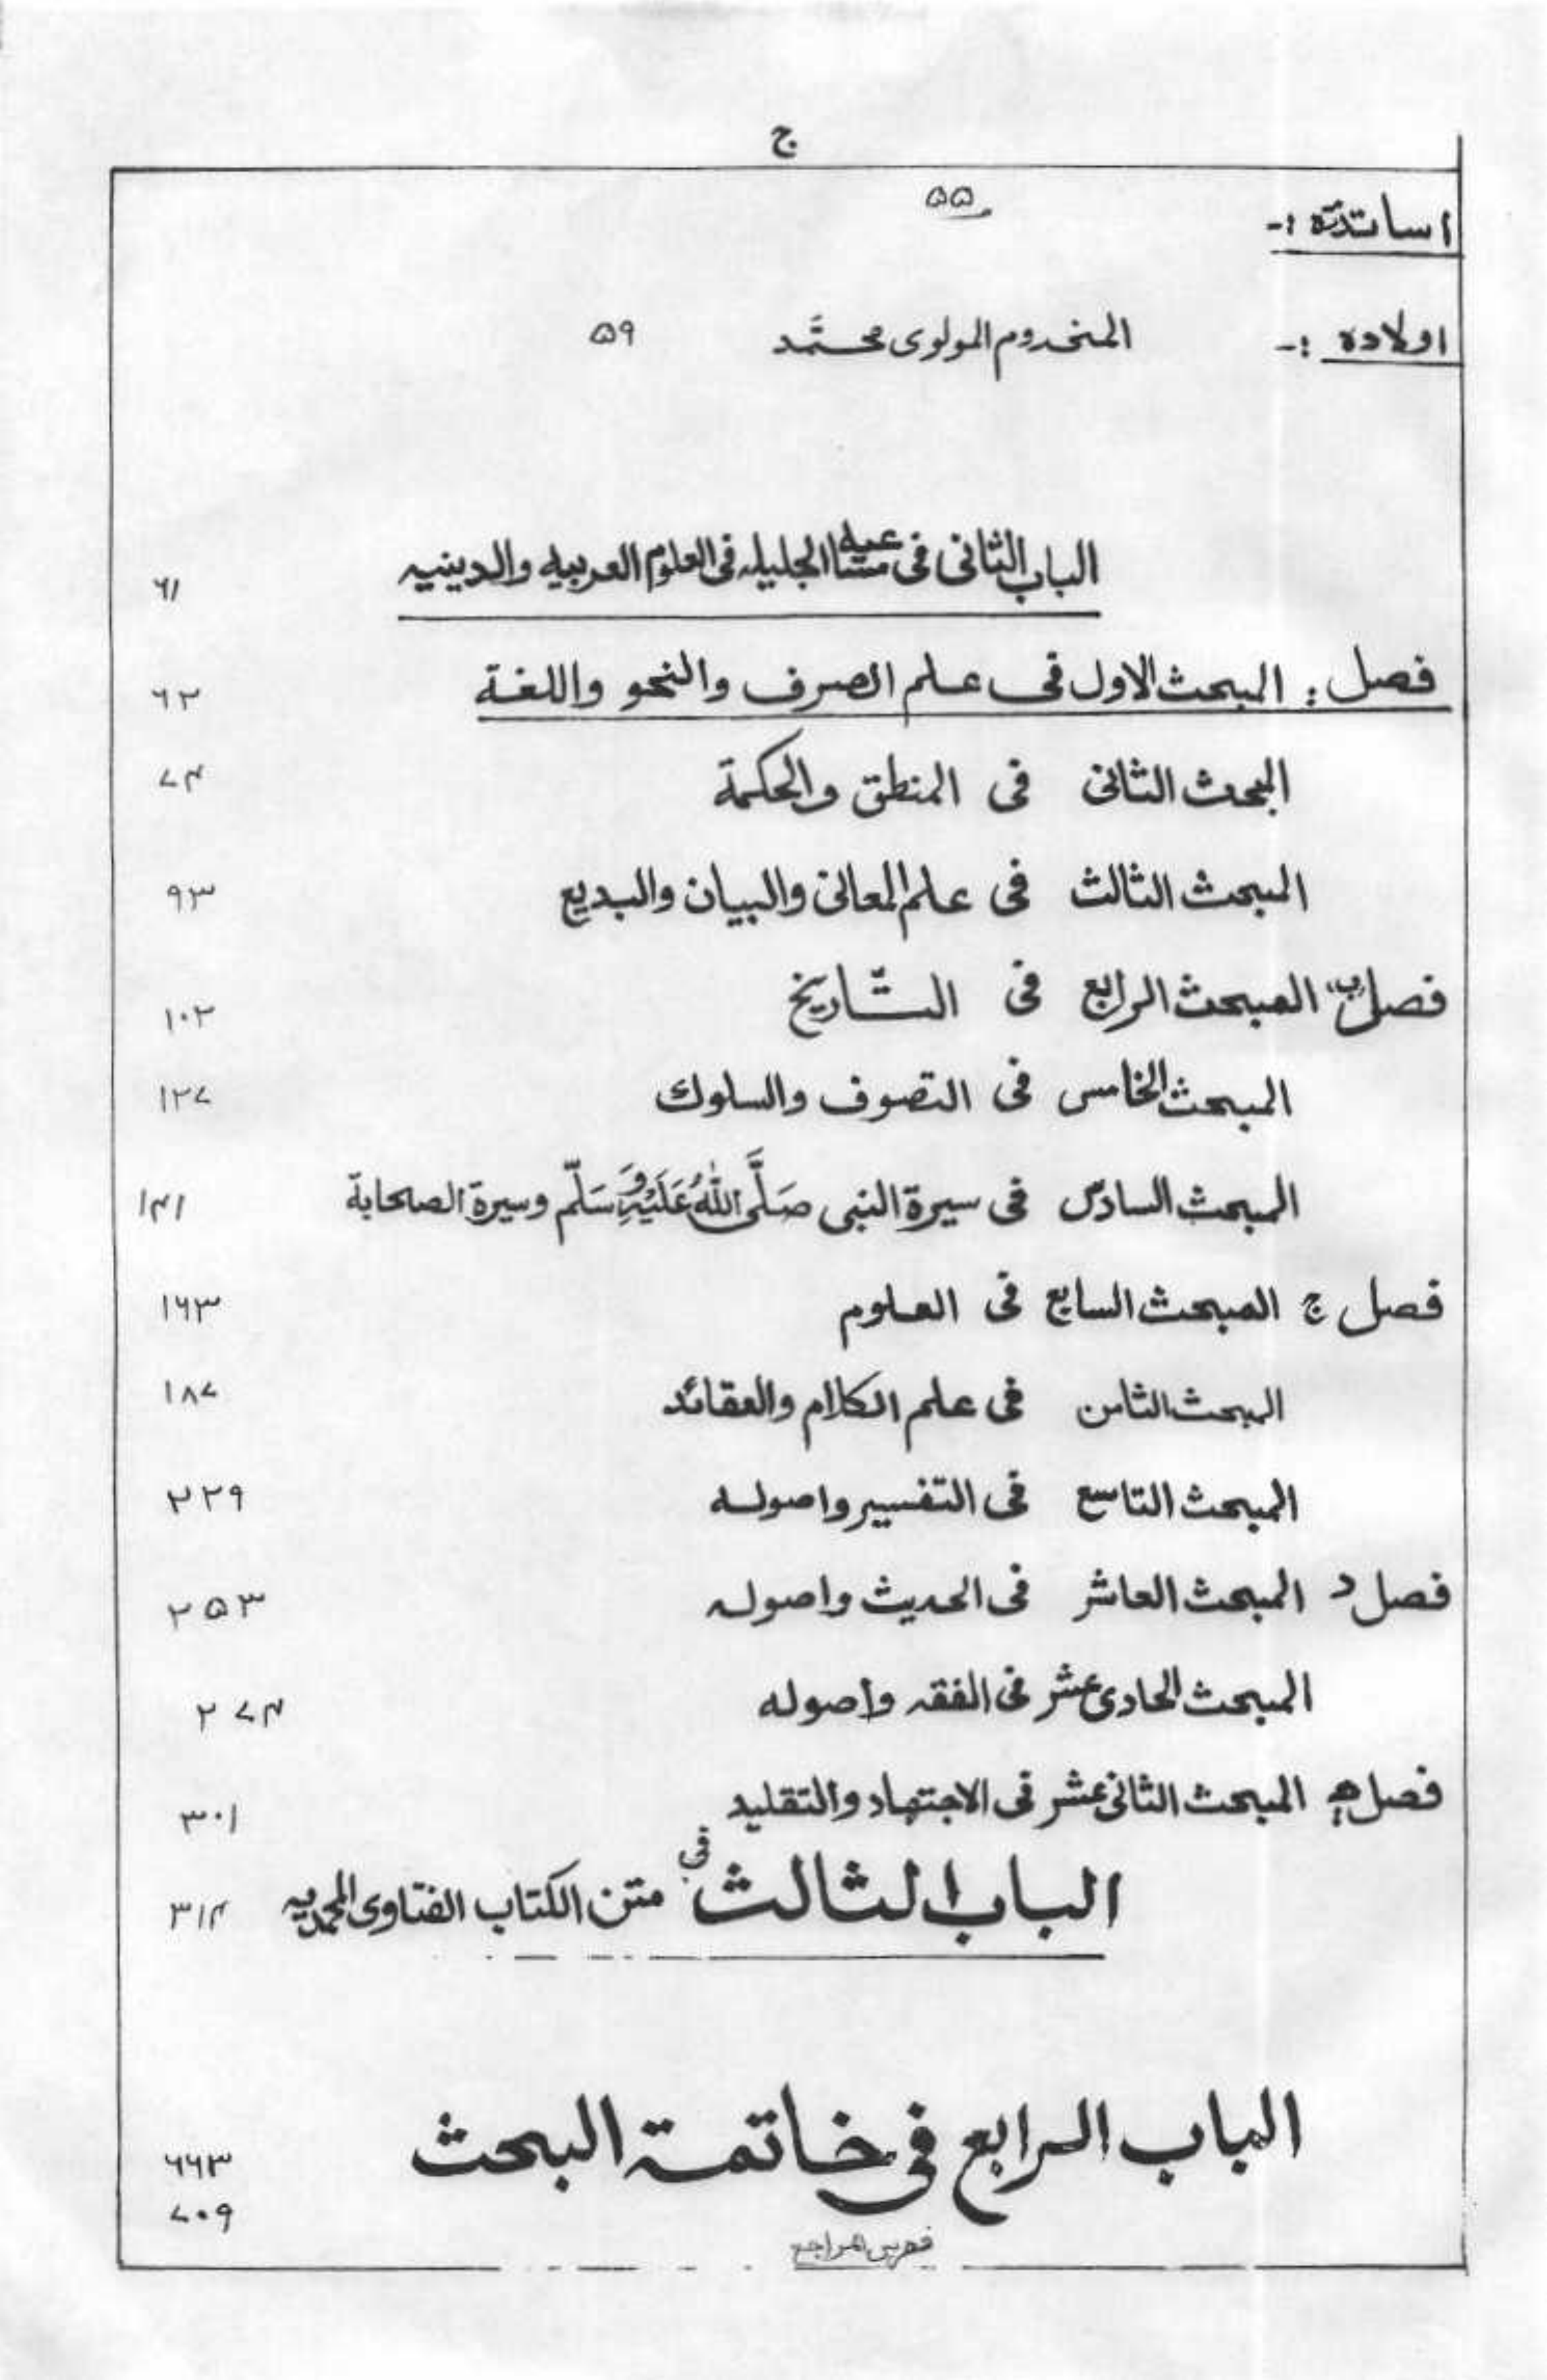 ج
اساتذته :- ۵۵
اولاده :- المخدوم المولوی محمَّد ۵۹
الباب الثانی فی مساعیه الجلیله فی العلوم العربیه والدینیه ۶۱
فصل : المبحث الاول فی علم الصرف والنحو واللغة ۶۲
المبحث الثانی فی المنطق والحکمة ۷۴
المبحث الثالث فی علم المعانی والبیان والبدیع ۹۳
فصل "ب" المبحث الرابع فی التّاریخ ۱۰۲
المبحث الخامس فی التصوف والسلوك ۱۲۷
المبحث السادس فی سیرة النبی صَلَّی اللهُ عَلَیْهِ وَسَلَّم وسیرة الصحابة ۱۴۱
فصل ج المبحث السابع فی العلوم ۱۶۳
المبحث الثامن فی علم الکلام والعقائد ۱۸۷
المبحث التاسع فی التفسیر واصوله ۲۲۹
فصل د المبحث العاشر فی الحدیث واصوله ۲۵۳
المبحث الحادی عشر فی الفقه وأصوله ۲۷۴
فصل ھ المبحث الثانی عشر فی الاجتهاد والتقلید ۳۰۱
الباب الثالث فی متن الکتاب الفتاوی المحمدیه ۳۱۴
الباب الرابع فی خاتمة البحث ۶۶۳
فهرس المراجع ۷۰۹